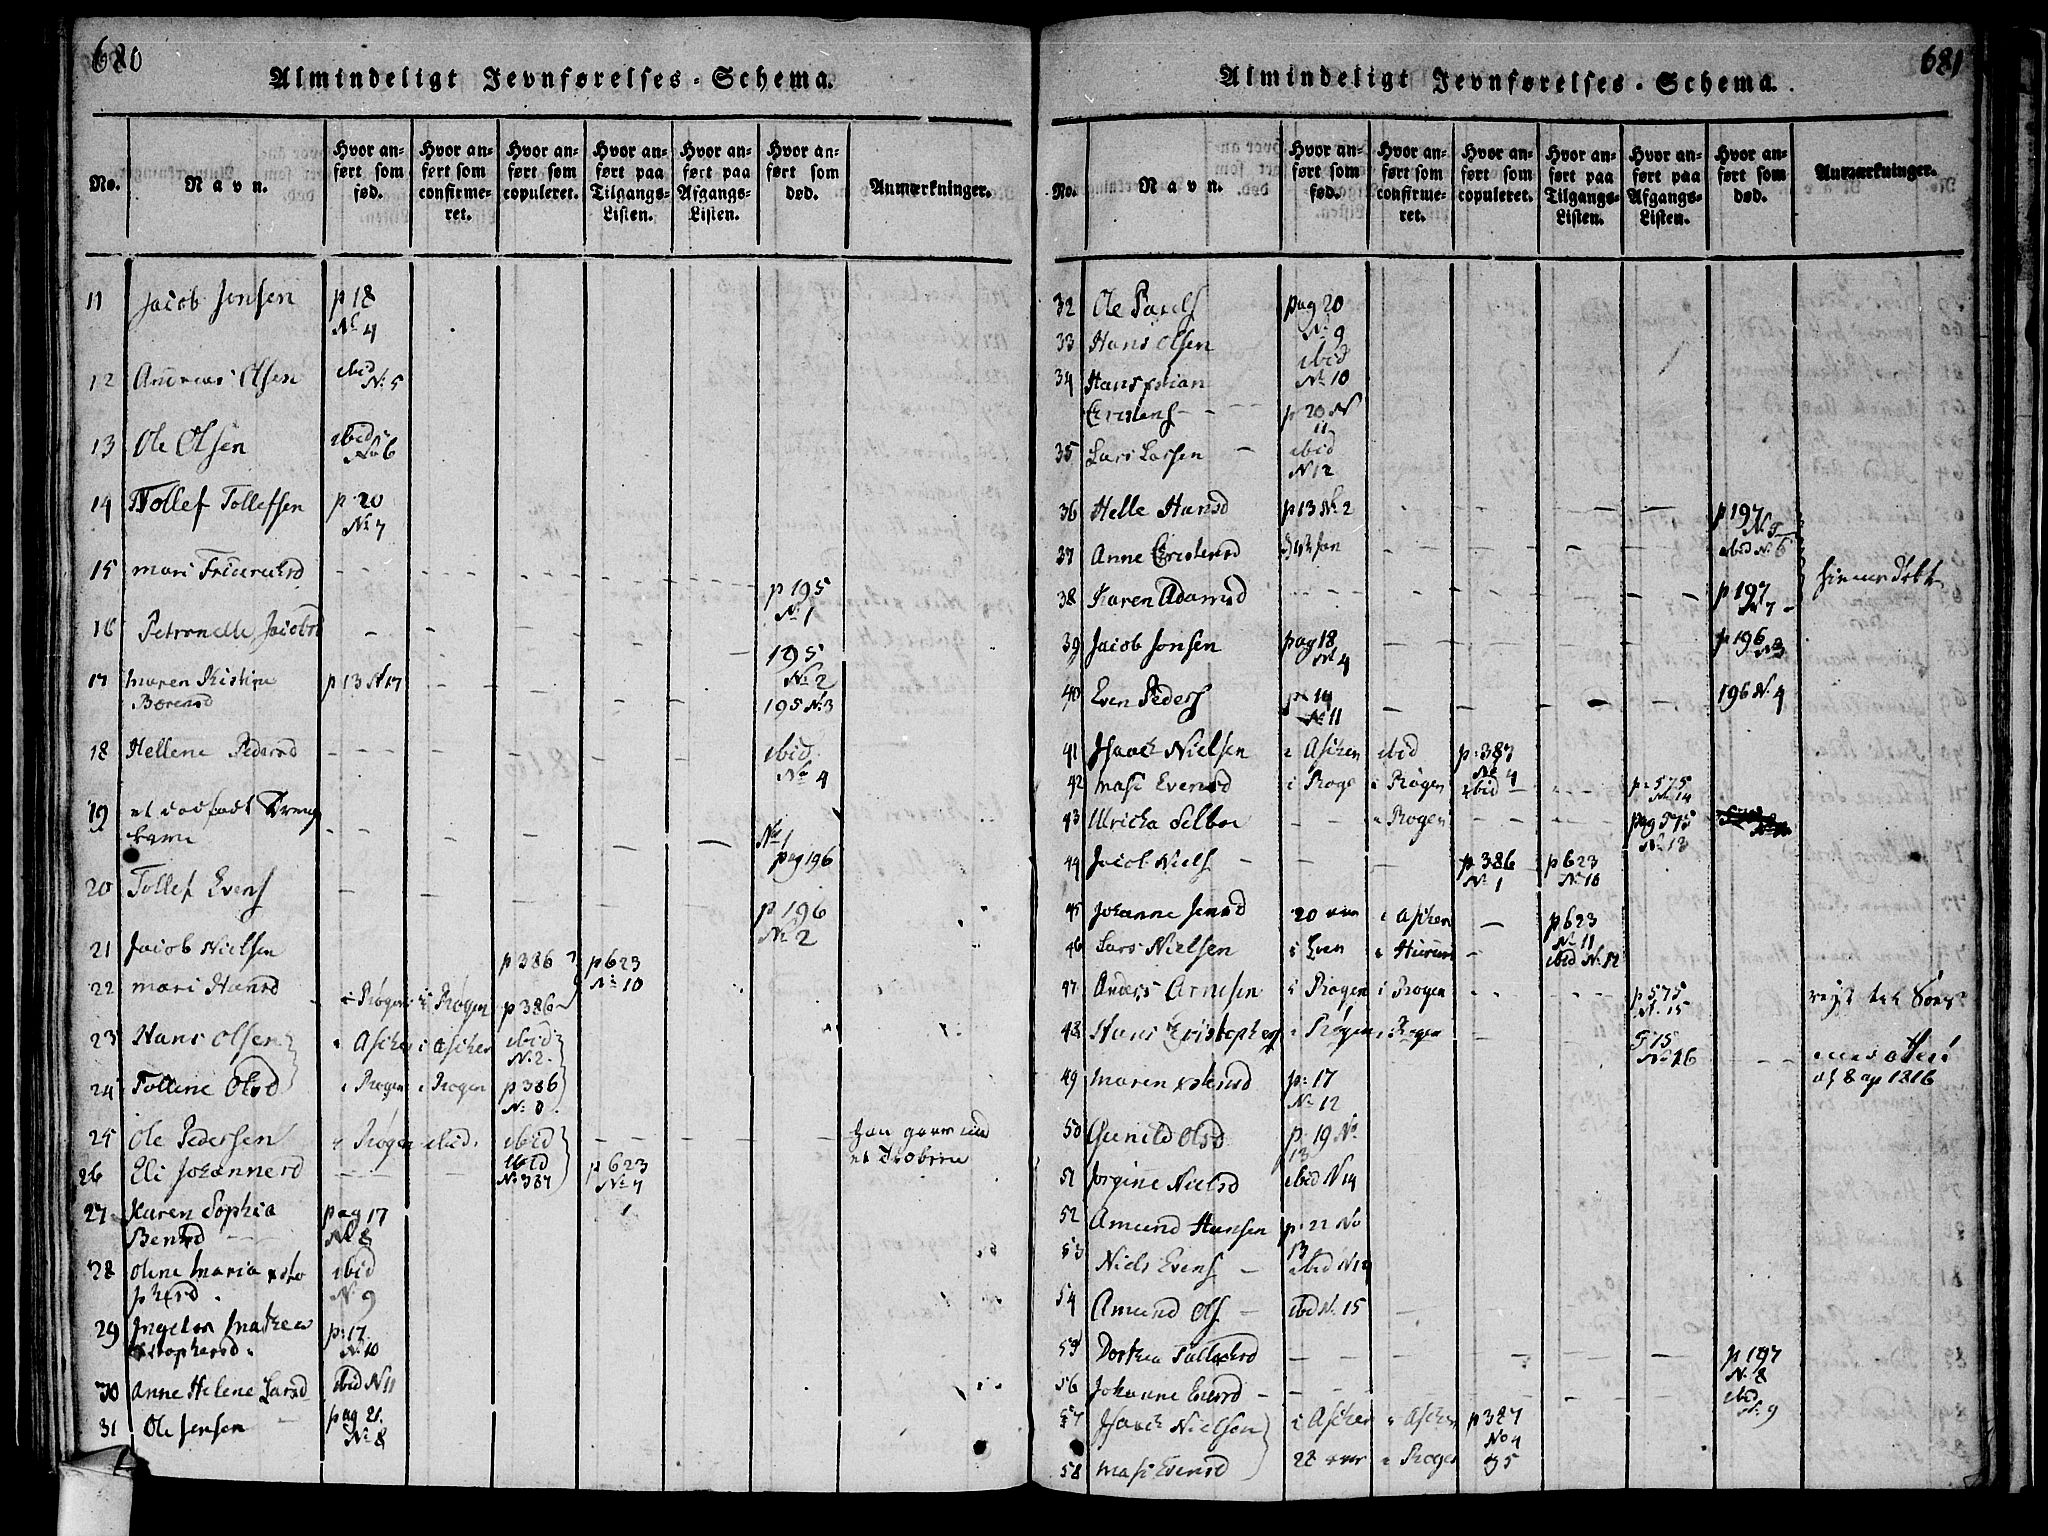 680
Almindeligt Jevnførelses-Schema.
No. Navn. Hvor anført som fød. Hvor anført som confirmeret. Hvor anført som copuleret. Hvor anført paa Tilgangs-Listen. Hvor anført paa Afgangs-Listen. Hvor anført som død. Anmærkninger.
11 Jacob Jensen p 18
No 4
12 Andreas Olsen ibid
No 5
13 Ole Olsen ibid
No 6
14 Tollef Tollefsen p 20
No 7
15 mari p 195
No 1
16 Petronelle Jacobsd 195
No 2
17 maren Kistine p 13 N 17
Børensd 195 No 3
18 Hellene Pedersd ibid
No 4
19 et dødfødt Drenge
barn No 1
pag 196
20 Tollef Evens p 196
No 2
21 Jacob Nielsen p 386 p 623
No 10
22 mari Hansd i Røgen i Røgen p 386
23 Hans Olsen i Asker i Asker ibid
No 2
24 Tollene Olsd i Røgen i Røgen p 386
No 3
25 Ole Pedersen i Røgen ibid ibid
26 Eli Johannesd ibid p 623
No 387 No 7
27 Karen Sophia pag 17
Bentsd No 8
28 Olene Maria xsto ibid
phersd No 9
29 Ingebor Mathea p: 17
xstophersd. No 10
30 Anne Helene Larsd ibid N 11
31 Ole Jensen pag 21.
No 8
681
Almindeligt Jevnførelses-Schema.
No. Navn. Hvor anført som fød. Hvor anført som confirmeret. Hvor anført som copuleret. Hvor anført paa Tilgangs-Listen. Hvor anført paa Afgangs-Listen. Hvor anført som død. Anmærkninger.
32 Ole Pauels pag 20
No 9
33 Hans Olsen ibid
No 10
34 Hans xstian
Eristens p 20 N
11
35 Lars Larsen ibid
N 12
36 Helle Hansd p 13 No 2 p 197
No 5
37 Anne Eristensd ibid No 6
38 Karen Adamsd p 197
No 7
39 Jacob Jonsen pag 18 p 196
No 4 No 3
40 Even Peders p 14 196 No 4
No 11
41 Isaach Nielsen i Asken ibid p: 387
No 4
42 masi Evensd i Røge i Røgen ibid p: 575
No 14
43 Ulricka i Røgen pag 575
No 13
44 Jacob Niels p 386 p 623
No 1 No 10
45 Johanne Jensd 20 i Asken p 623
No 11
46 Lars Nielsen i i Hurum ibid No 12
47 Anders Arnesen i Røgen i Røgen p 575
No 15
48 Hans Eristophers i Røgen i Røgen
No 16
49 Maren p: 17 af 8 ap 1816
No 12
50 Gunild Olsd p 19 No
13
51 Jorgine Nielsd ibid N 14
52 Amund Hansen p: 22 No
13
53 Niels Evens ibid N 14
54 Amund Ols ibd No 15
55 Dorthea p 197
No 8
56 Johanne Evensd ibid
No 9
57 Isaach Nielsen i Asker i Asker p 387
No 4
58 Masi Evensd 28 i Røgen